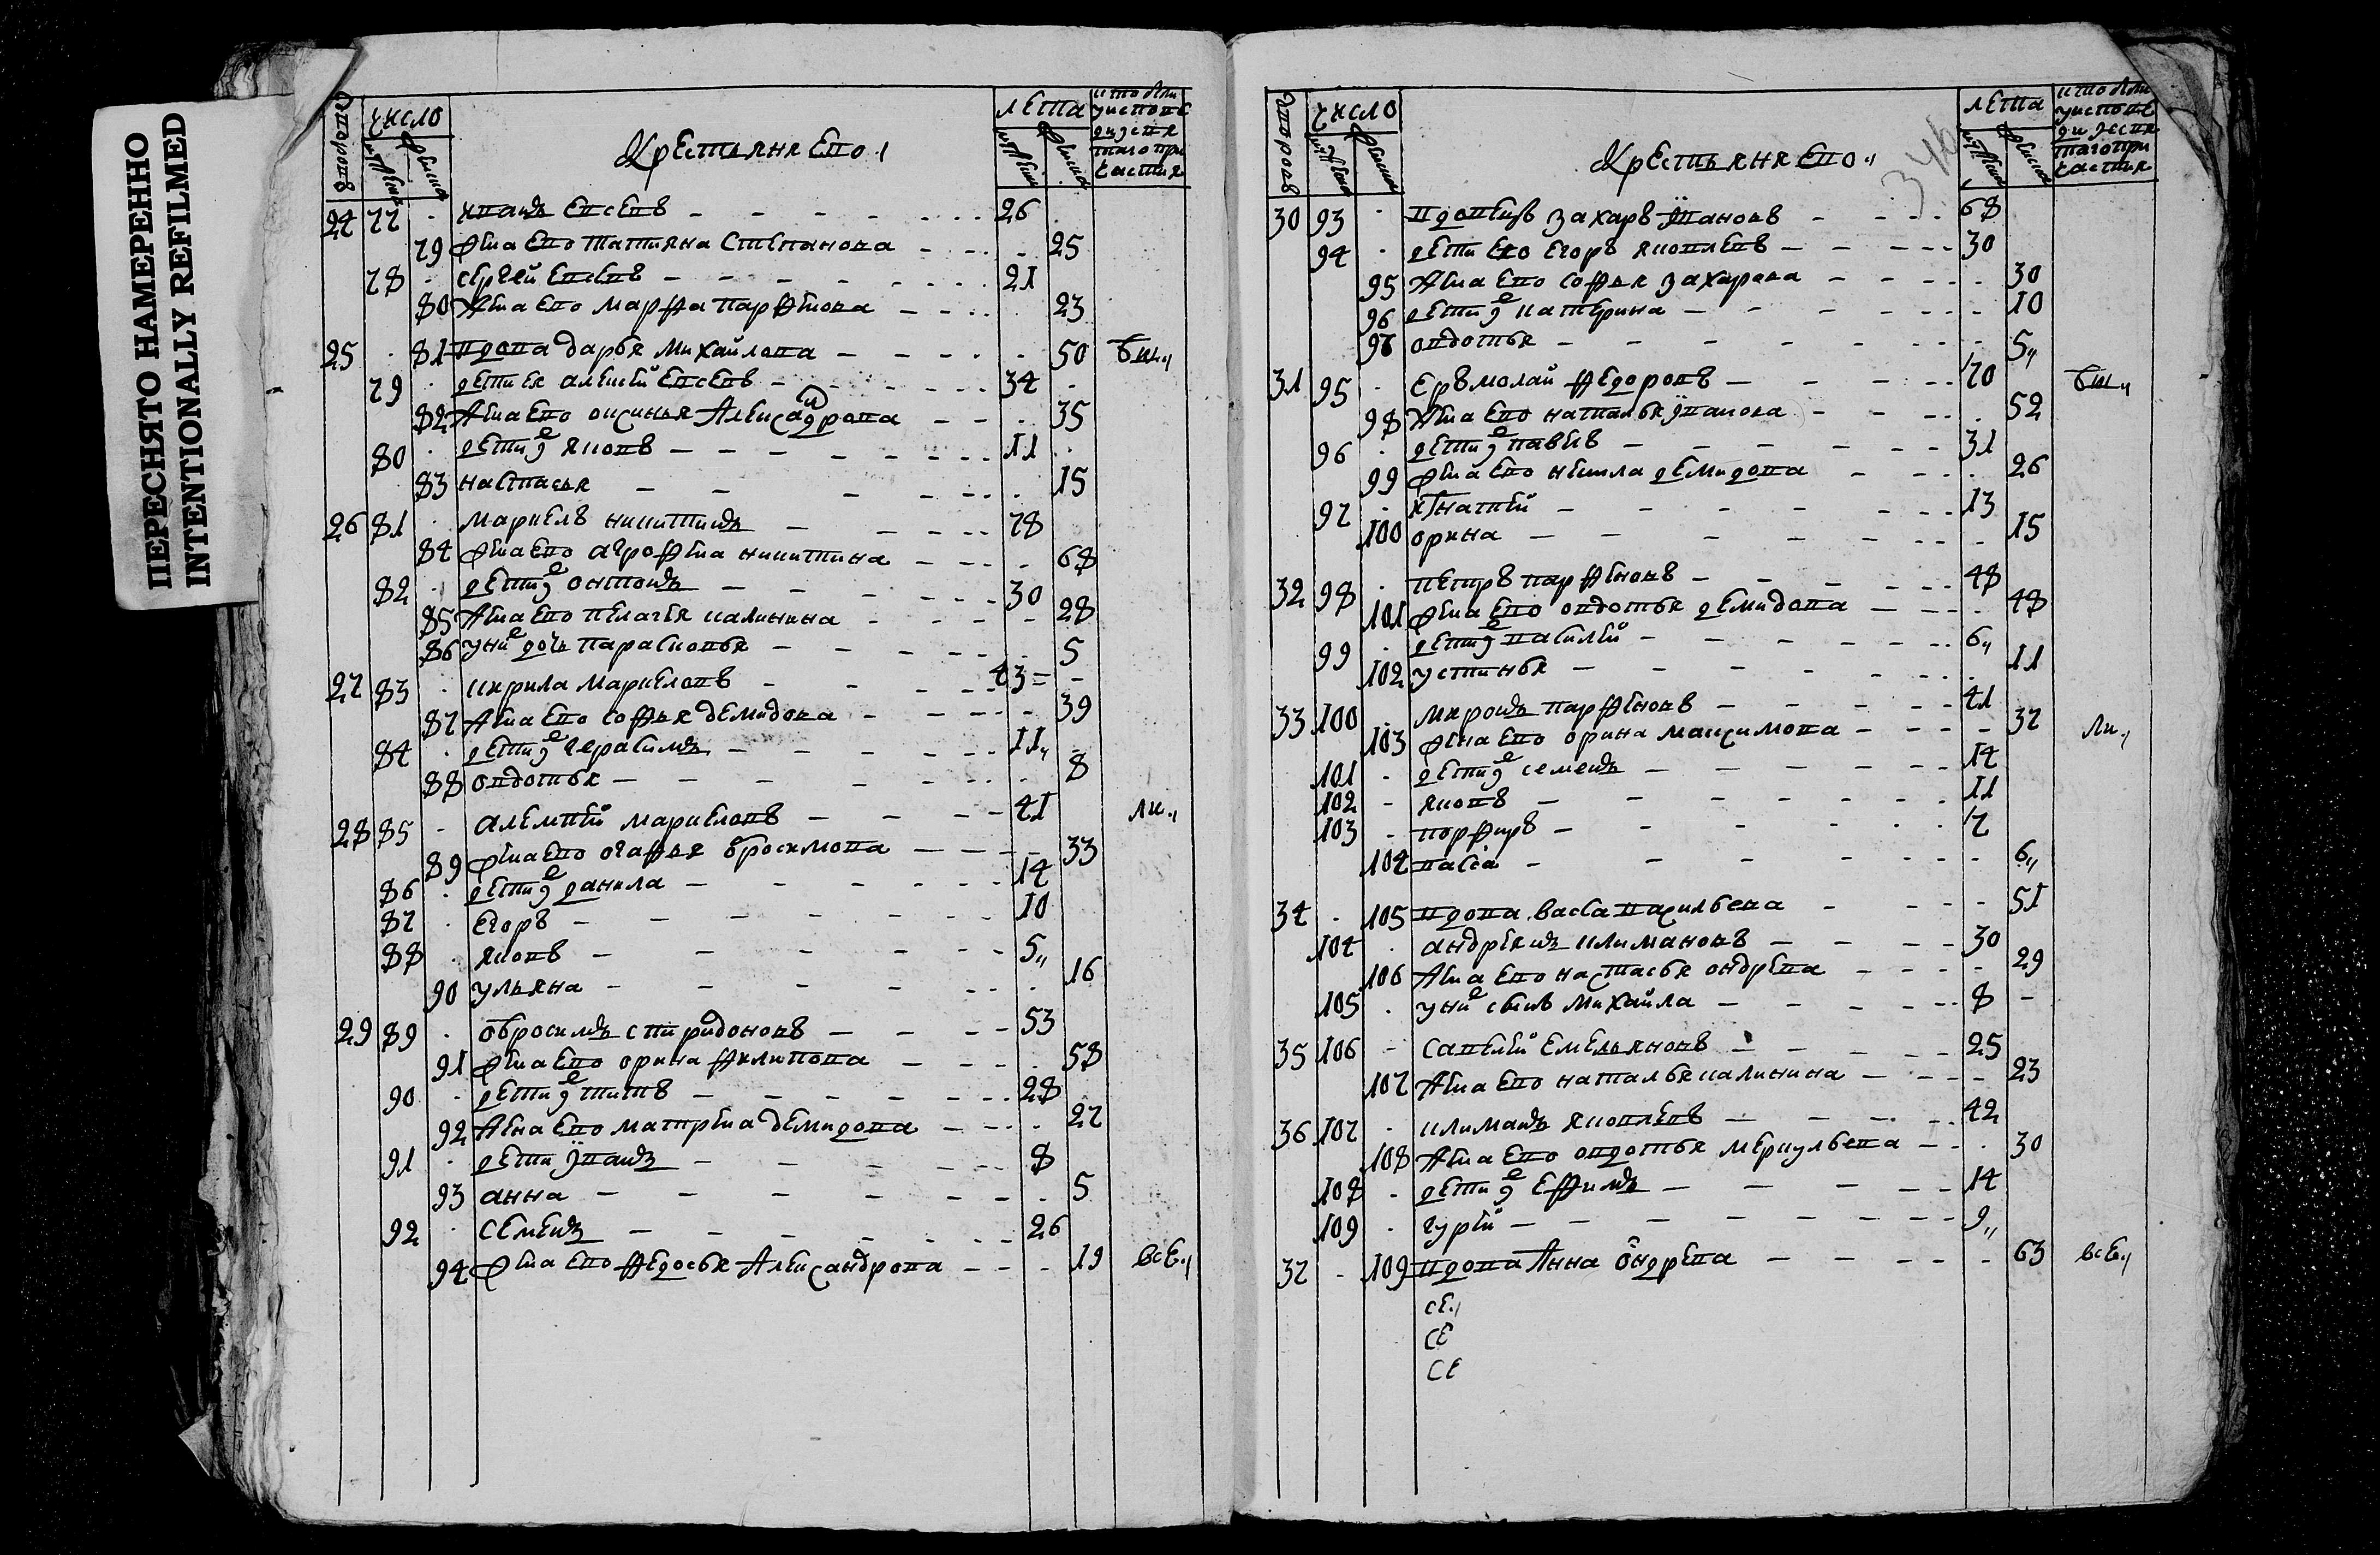 ПЕРЕСНЯТО НАМЕРЕННО
INTENTIONALLY REFILMED
число
лета
Крестьяня ево
24 77 иванъ евсевъ 26
79 жена ево татияна степанова 25
78 сергей евсевъ 21
80 жена ево марфа парфенова 23
25 81 вдова дарья михайлова 50
79 дети ея алексей евсевъ 34
82 жена ево оксинья александрова 35
80 дети яковъ 11
83 настасья 15
26 81 маркелъ никитинъ 78
84 жена ево агрофена никитина 68
82 дети онтонъ 30
85 жена ево пелагея калинина 28
86 у них дочь парасковья 5
27 83 кирила маркеловъ 43
87 жена ево софья демидова 39
84 дети герасимъ 11
88 овдотья 8
28 85 алемпей маркеловъ 41
89 жена ево огафья обросимова 33
86 дети данила 14
87 егоръ 10
88 яковъ 5
90 ульяна 16
29 89 обросимъ спиридоновъ 53
91 жена ево орина филипова 58
90 дети титъ 28
92 жена ево матрена демидова 27
91 дети иванъ 8
93 анна 5
92 семенъ 26
94 жена ево федосья александрова 19 все
число
лета
Крестьяня ево
30 93 вдовецъ захаръ ивановъ 68
94 дети ево егоръ яковлевъ 30
95 жена ево софья захарова 30
96 дети катерина 10
97 овдотья 5
31 95 ермолай федоровъ 70
98 жена ево наталья иванова 52
96 дети павелъ 31
99 жена ево неонила демидова 26
97 игнатей 13
100 орина 15
32 98 петръ парфеновъ 48
101 жена ево овдотья демидова 48
99 дети василей 6
102 устинья 11
33 100 миронъ парфеновъ 41
103 жена ево орина максимова 37
101 дети семенъ 14
102 яковъ 11
103 порфиръ 7
104 васса 6
34 105 вдова васса васильева 51
104 андреянъ климановъ 30
106 жена ево настасья ондрева 29
105 у них сынъ михайла 8
35 106 савелей емельяновъ 25
107 жена ево наталья калинина 23
36 107 климанъ яковлевъ 42
108 жена ево овдотья меркульева 30
108 дети ефимъ 14
109 гурей 9
37 109 вдова анна ондрева 63 все
се
се
се